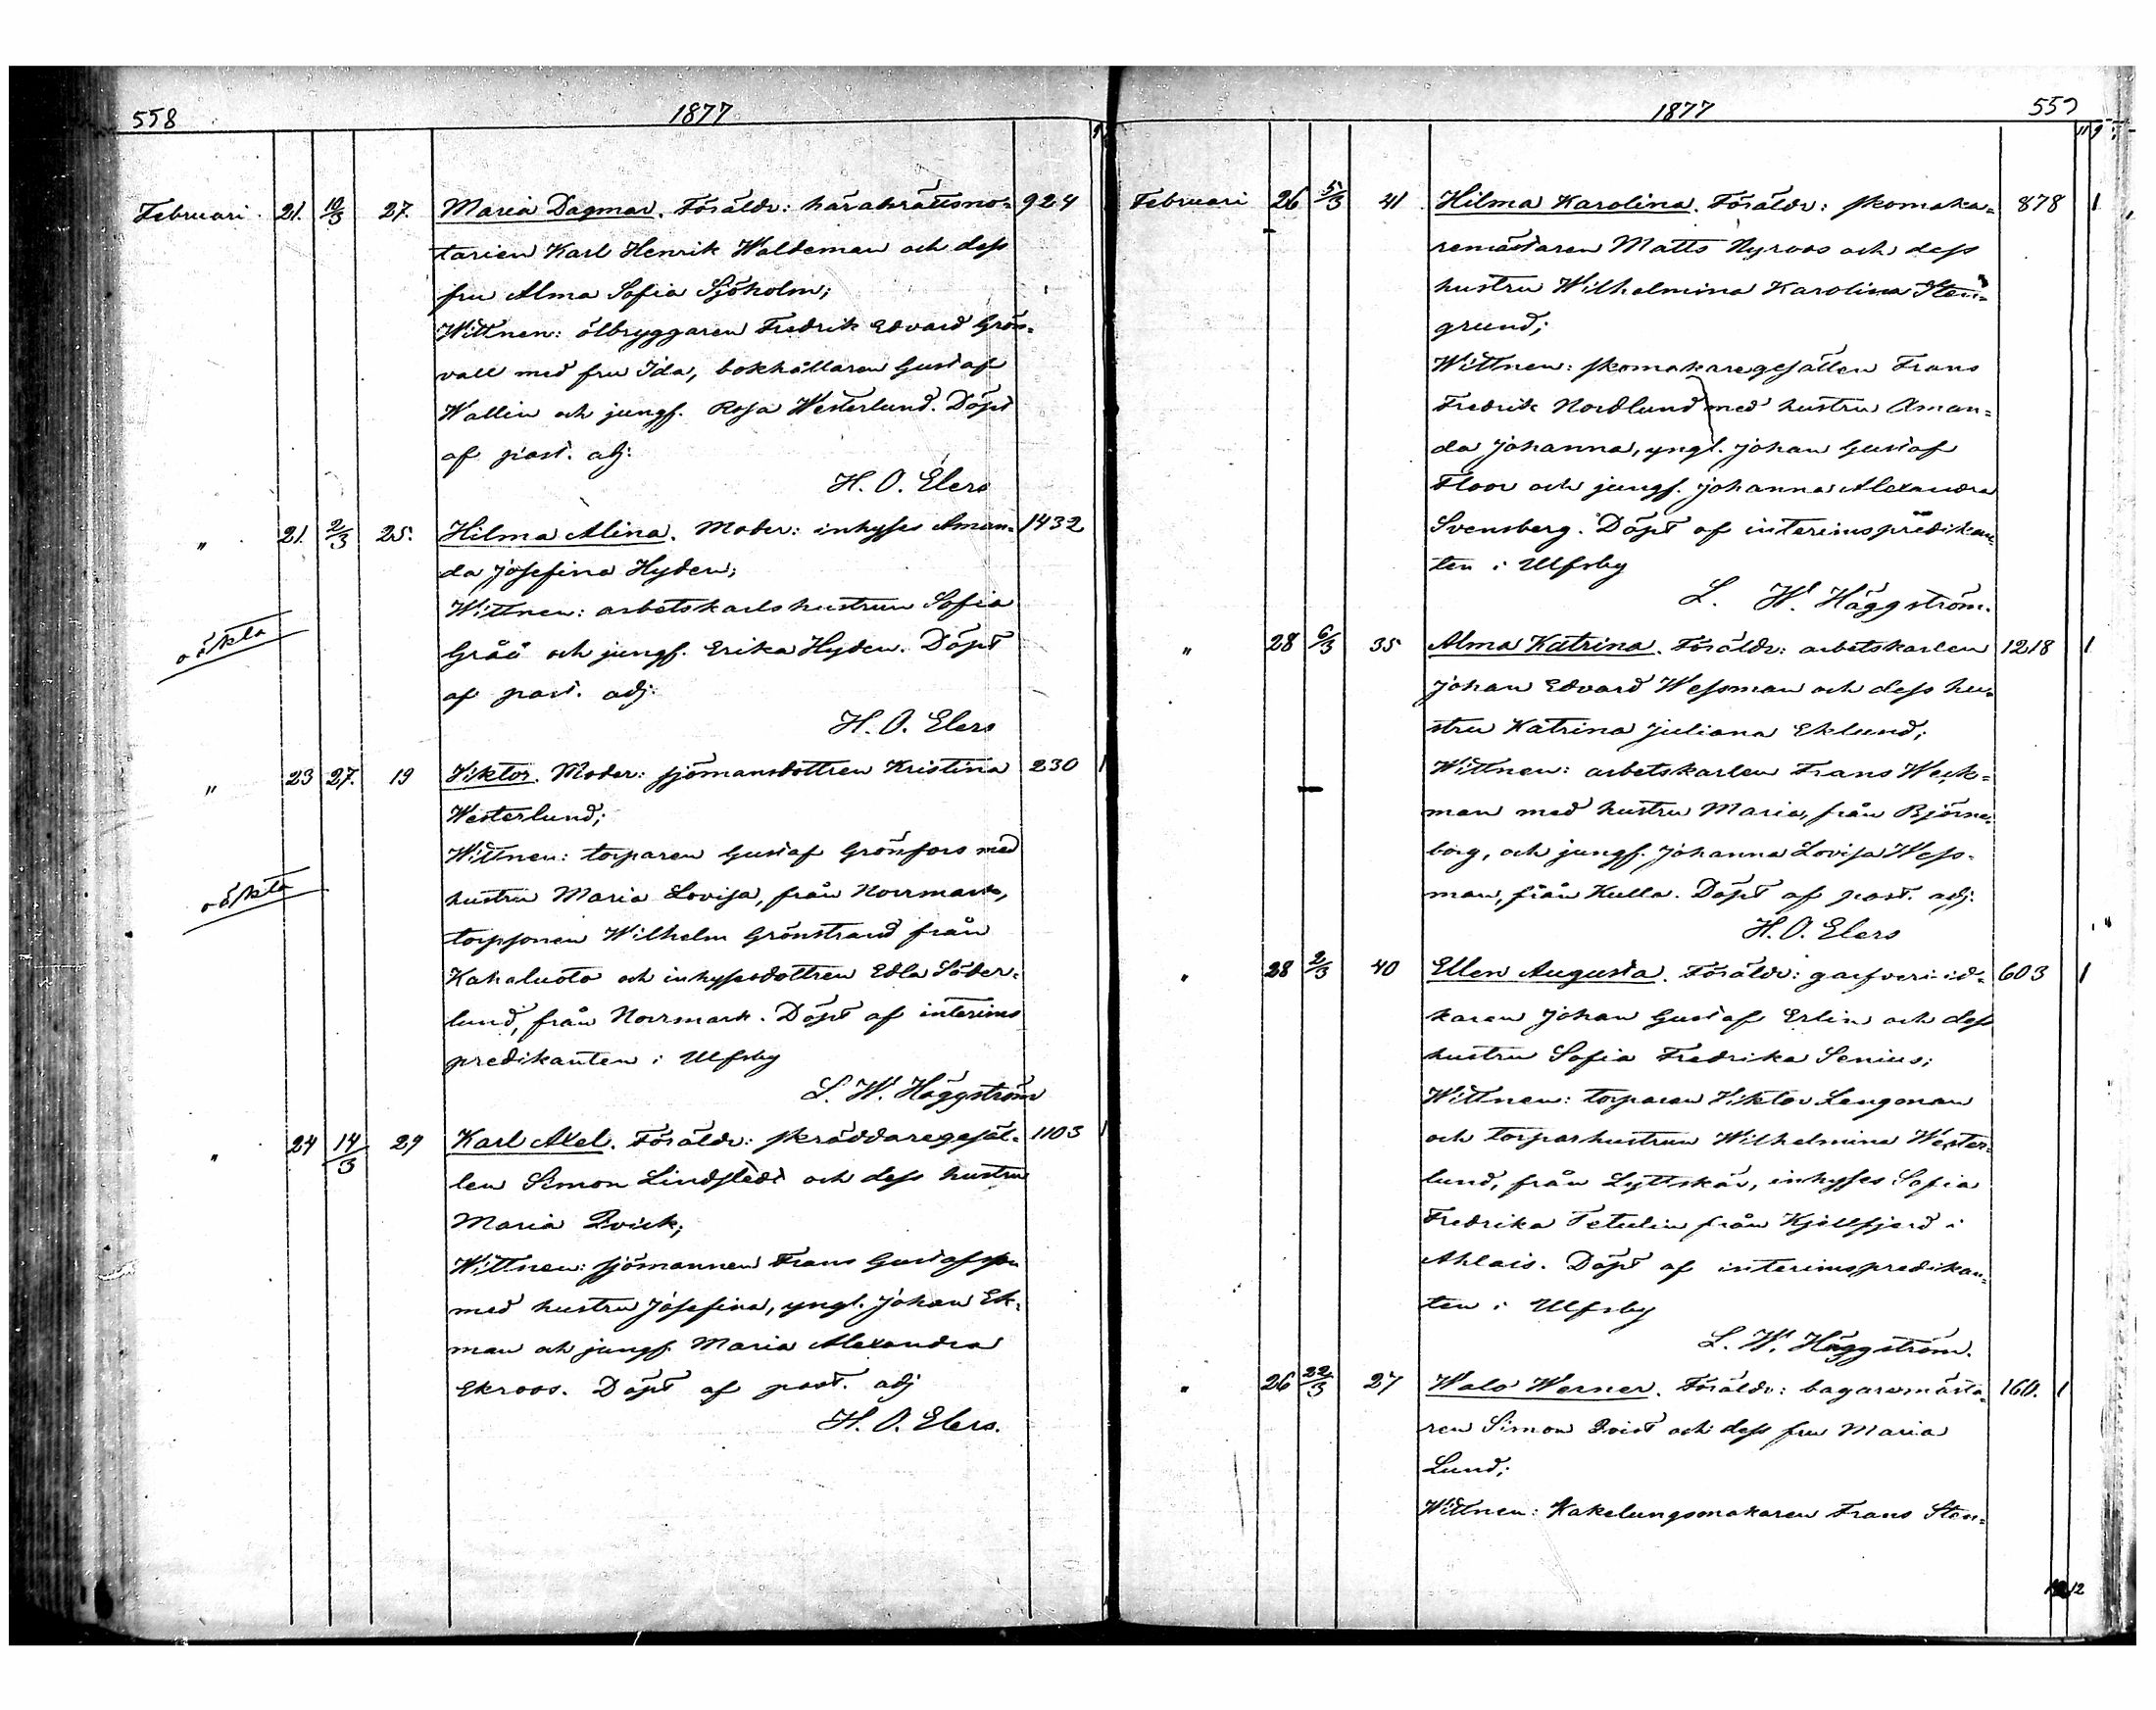 558 1877
Februari. 21. 10/3 27. Maria Dagmar. Föräldr: häradsrättsno= 924
tarien Karl Henrik Waldeman och dess
fru Alma Sofia Sjöholm;
Wittnen: ölbryggaren Fredrik Edvard Grön=
vall med fru Ida, bokhållaren Gustaf
Wallin och jungf. Rosa Westerlund. Döpt
af past. adj.
H. O. Elers
" 21. 2/3 25. Hilma Alina. Moder: inhyses Aman= 1432
da Josefina Hyden;
Wittnen: arbetskarlshustrun Sofia
oäkta
Gråå och jungf. Erika Hyden. Döpt
af past. adj.
H. O. Elers
" 23 27. 19 Viktor. Moder: sjömansdottren Kristina 230 1
Westerlund;
Wittnen: torparen Gustaf Grönfors med
oäkta
hustru Maria Lovisa, från Norrmark,
torpsonen Wilhelm Grönstrand från
Kahaluoto och inhysesdottren Edla Söder=
lund, från Norrmark. Döpt af interims
predikanten i Ulfsby
L. W. Häggström
" 24 14/3 29 Karl Axel. Föräldr: skräddaregesäl= 1103 1
len Simon Lindstedt och dess hustru
Maria Qvick;
Wittnen: sjömannen Frans Gustafsson
med hustru Josefina, yngl. Johan Ek=
man och jungf. Maria Alexandra
Ekroos. Döpt af past. adj
H. O. Elers.
1877 559
Februari 26 5/3 41 Hilma Karolina. Föräldr: skomaka= 878 1
remästaren Matts Nyroos och dess
hustru Wilhelmina Karolina Sten=
grund;
Wittnen: skomakaregesällen Frans
Fredrik Nordlund med hustru Aman=
da Johanna, yngl. Johan Gustaf
Floor och jungf. Johanna Alexandra
Svensberg. Döpt af interimspredikan=
ten i Ulfsby
L. W. Häggström.
" 28 6/3 35 Alma Katrina. Föräldr: arbetskarlen 1218 1
Johan Edvard Wessman och dess hu=
stru Katrina Juliana Eklund;
Wittnen: arbetskarlen Frans Weck=
man med hustru Maria, från Björne=
borg, och jungf. Johanna Lovisa Wess=
man, från Kulla. Döpt af past. adj.
H. O. Elers
" 28 2/3 40 Ellen Augusta. Föräldr: garfveriid= 603 1
karen Johan Gustaf Erlin och dess
hustru Sofia Fredrika Senius;
Wittnen: torparen Viktor Lengman
och torparhustrun Wilhelmina Wester=
lund, från Lyttskär, inhyses Sofia
Fredrika Tetulin från Kjellfjerd i
Ahlais. Döpt af interimspredikan=
ten i Ulfsby
L. W. Häggström.
" 26 22/3 27 Walo Werner. Föräldr: bagaremästa= 160. 1
ren Simon Qvist och dess fru Maria
Lund;
Wittnen: Kakelungsmakaren Frans Sten=